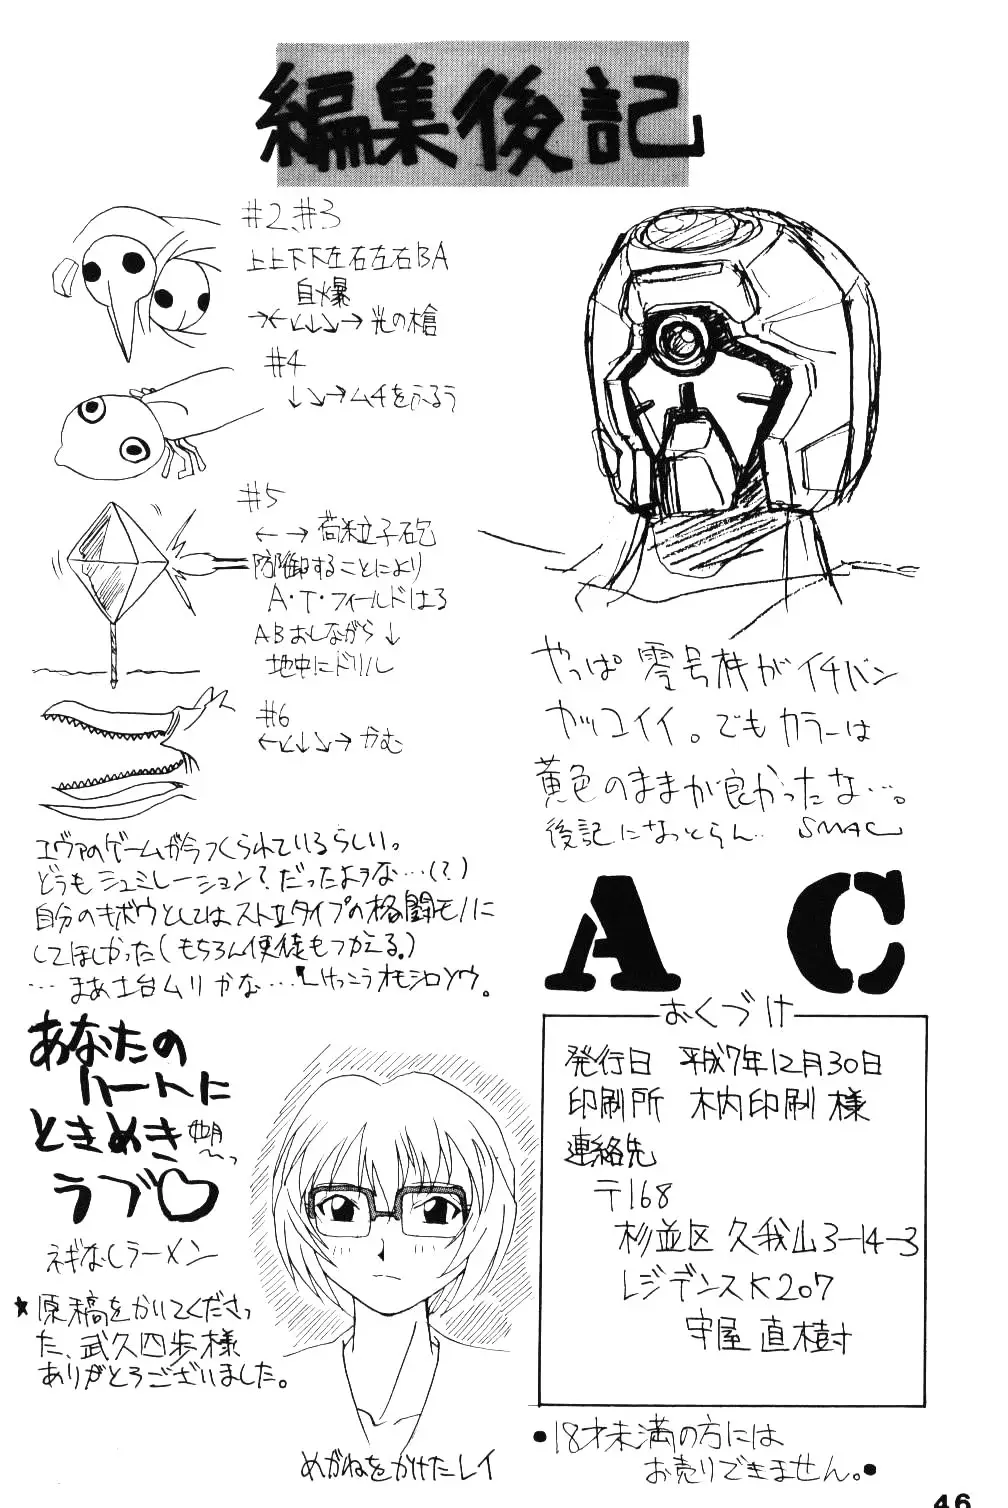 編集後記
#2、#3
上上下下左右左右BA
自爆
→←↙↓↘→ 光の槍
#4
↓↘→ムチをふるう
#5
← → 荷粒子砲
防御することにより
A・T・フィールドはる
ABおしながら ↓
地中にドリル
#6
←↙↓↘→ かむ
エヴァのゲームが今つくられているらしい。
どうもシュミレーション?だったよヲな…(?)
自分のキボウとしてはストⅡタイプの格闘モノに
してほしかった(もちろん使徒もつかえる。)
…まあ土台ムリかな…けっこうオモシロソウ。
やっぱ零号機がイチバン
カッコイイ。でもカラーは
黄色のままが良かったな…。
後記になっとらん… SMAC
あなたの
ハートに
ときめき
ラブ♡
ネギなしラーメン
★原稿をかいてくださっ
た、武久四歩様
ありがとうございました。
めがねをかけたレイ
A C
おくづけ
発行日 平成7年12月30日
印刷所 木内印刷 様
連絡先
〒168
杉並区 久我山3-14-3
レジデンスK207
守屋 直樹
●18才未満の方には
お売りできません。●
46